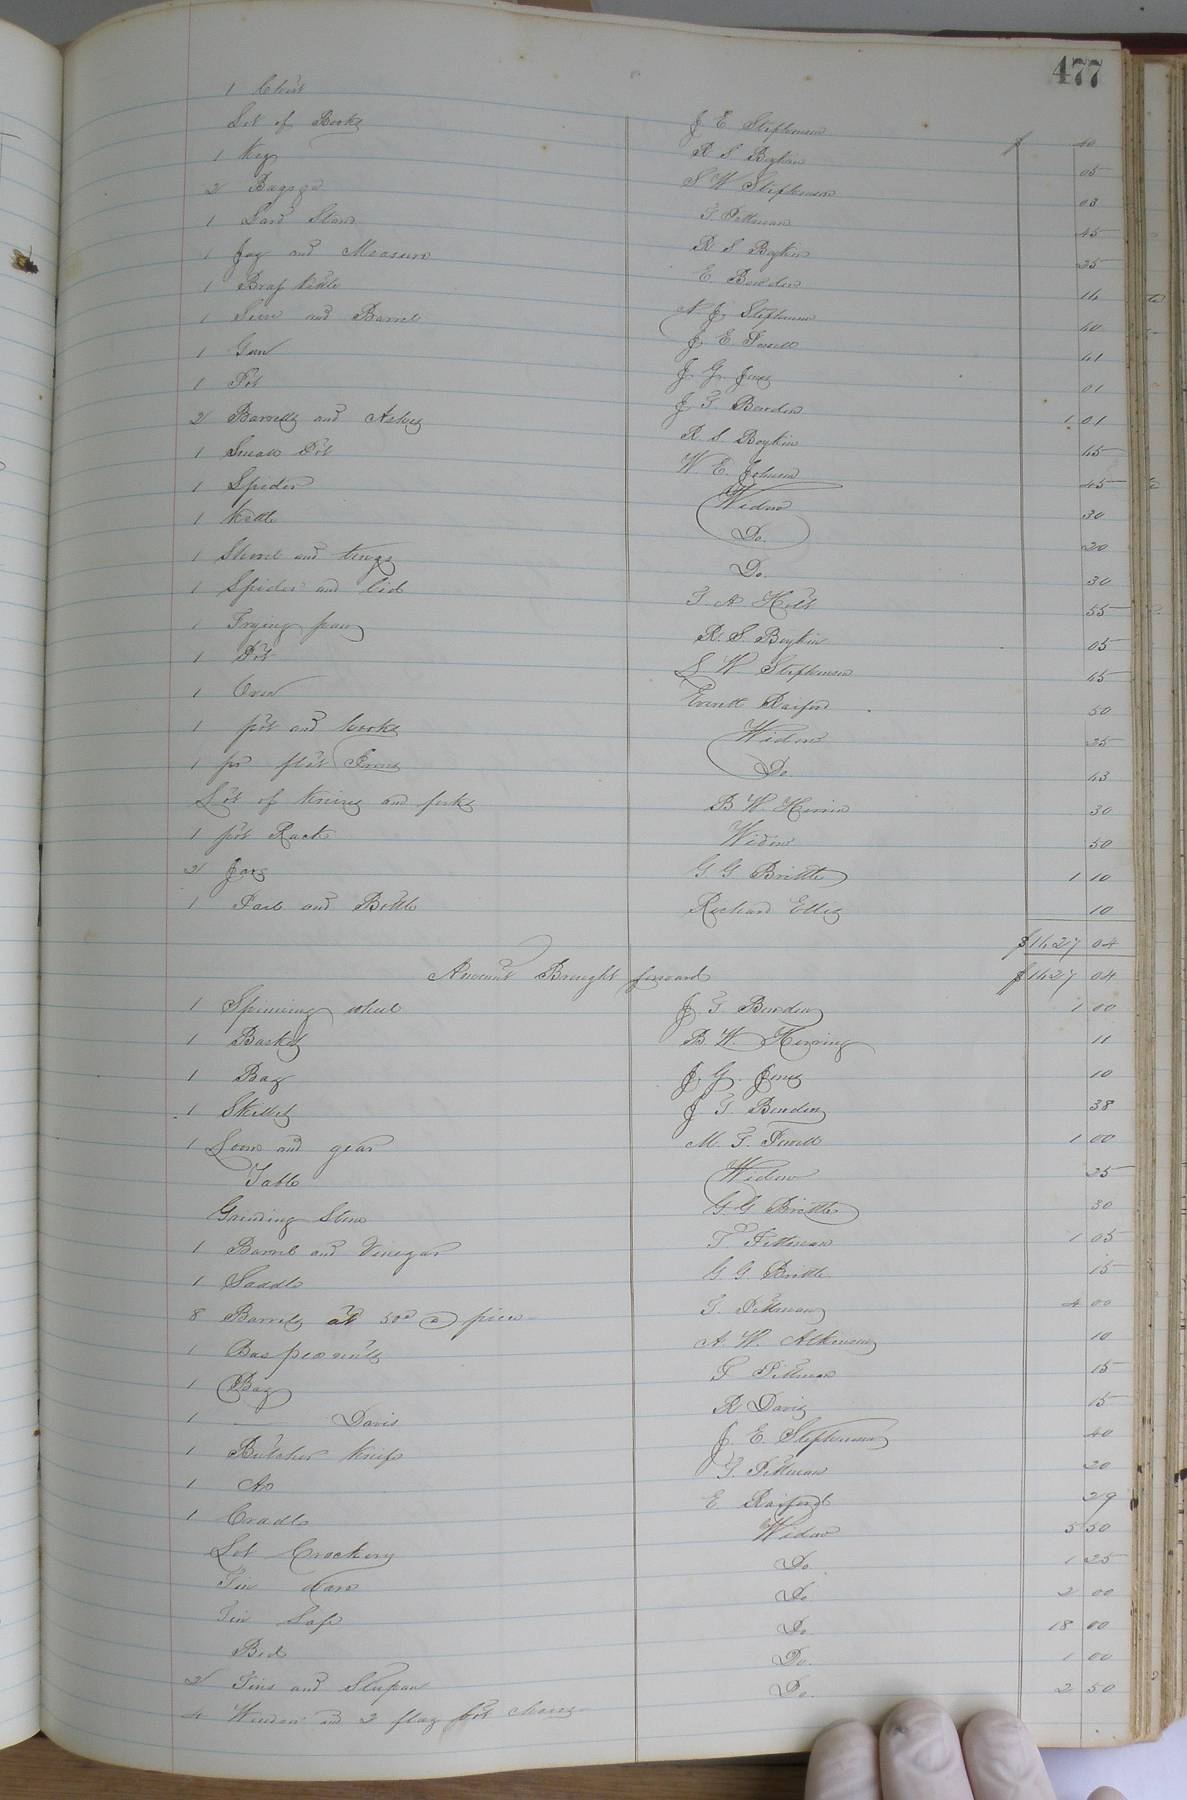 477
1 Chest J E Stephenson $ 40
Lot of Books R S Boykin 05
1 Keg S W Stephenson 03
2 Baggs T Pittman 45
1 Lard Stand R S Boykin 25
1 Jug and Measure E Bowden 16
1 Brass Kettle A J Stephenson 40
1 Sieve and Barrel J E Powell 41
1 Gun J. G. Jones 01
1 Pot J T. Bowden 1 01
2 Barrells and Ashes R S Boykin 45
1 Small Pot W E Johnson 45
1 Spider Widow 30
1 Kettle Do. 20
1 Shovel and tongs Do. 30
1 Spider and lid T. A Holt 55
1 Frying pan R. S. Boykin 05
1 Pot S W Stephenson 45
1 Oven Everett Raiford 50
1 pot and hooks Widow 25
1 pr flat Irons Do 43
Lot of Knives and forks B W. Herrin 30
1 pot Rack Widow 50
2 Jars G G Brittle 1 10
1 Pail and Bottle Richard Ellis 10
$1427 04
Amount Brought forward $1427 04
1 Spinning wheel J. T Bowden 1 00
1 Basket B. W. Herring 11
1 Bag J. G. Jones 10
1 Skillet J T Bowden 38
1 Loom and gear M. T. Powell 1 00
Table Widow 25
Grinding Stone G G Brittle 30
1 Barrel and Vinegar T Pittman 1 05
1 Saddle G G Brittle 15
8 Barrels at 50c a piece T. Pittman 4 00
1 Bas peanuts A. W. Atkinson 10
1 Bag T Pittman 15
1 — Davis R Davis 15
1 Butcher Knife J. E. Stephenson 40
1 Ax T Pittman 20
1 Cradle E Raiford 29
Lot Crockery Widow 5 50
Tin Ware Do 1 25
Tin Safe Do 2 00
Bed Do 18 00
2 Tins and Do. 1 00
4 Windsor and 2 flag bot chairs Do. 2 50